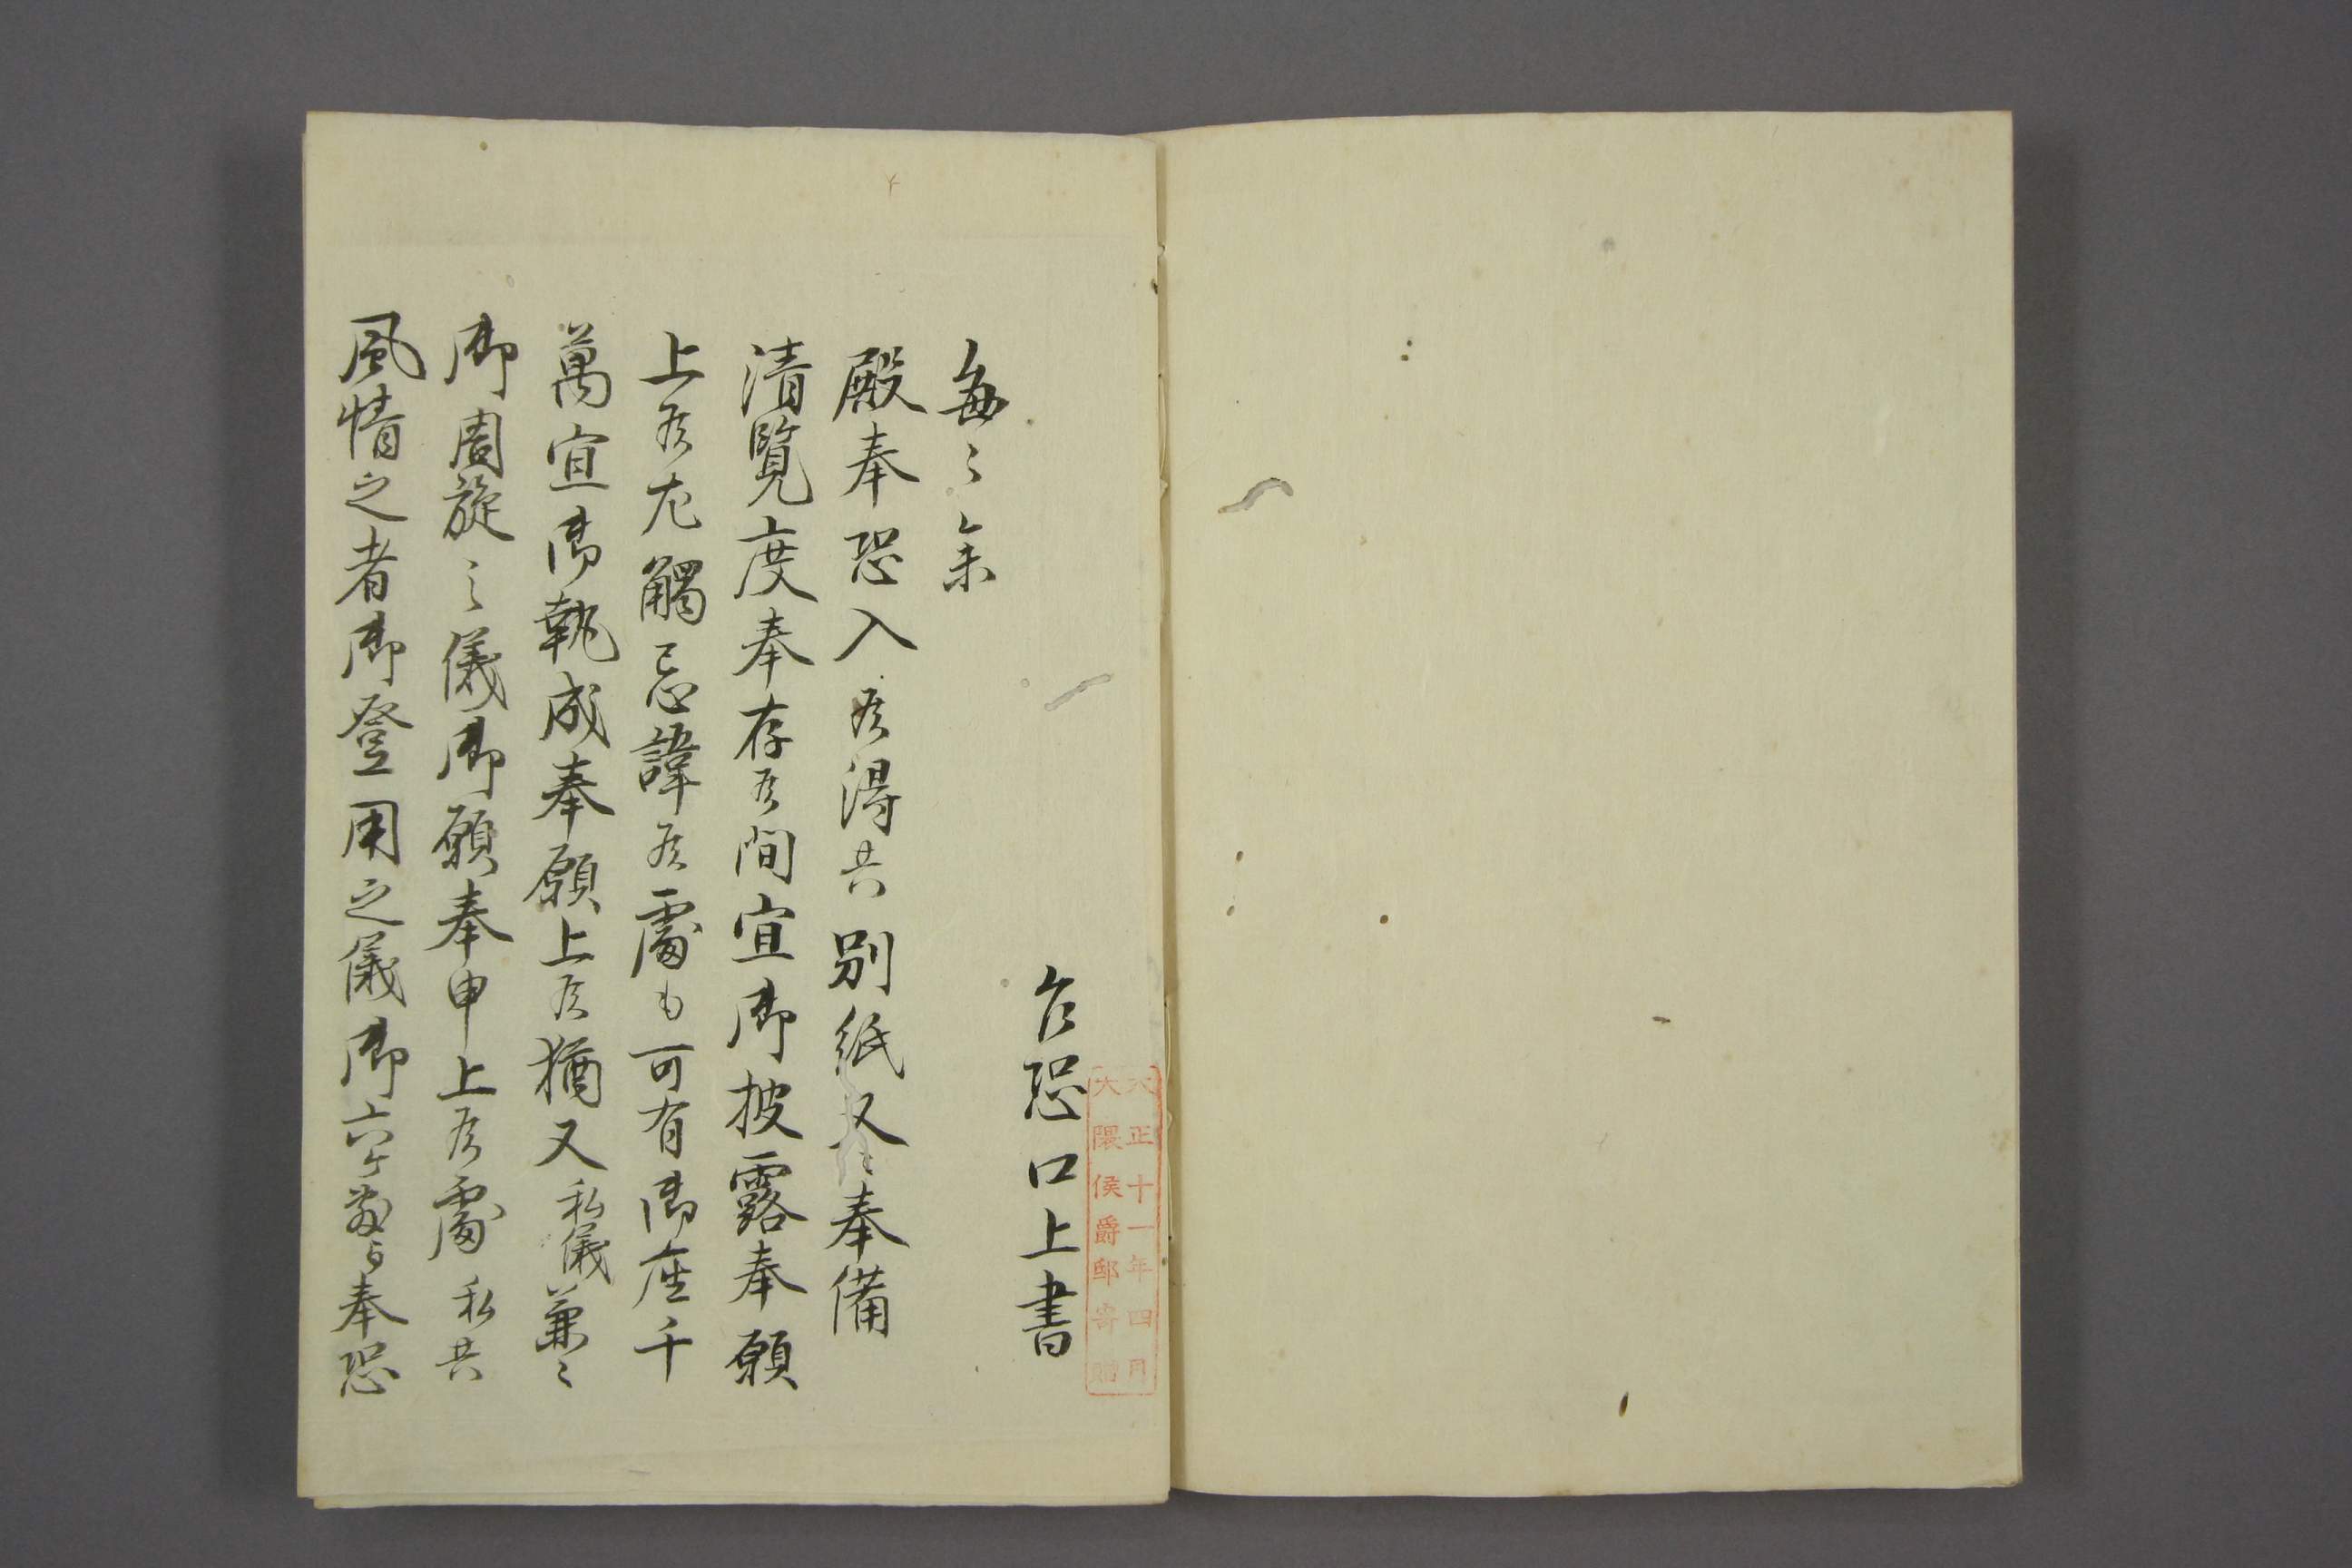 乍恐口上書
大正十一年四月
大隈侯爵邸寄贈
毎々余
殿奉恐入候得共別紙又々奉備
清覧度奉存候間宜御披露奉願
上候尤觸忌諱候處も可有御座千
萬宜御執成奉願上候猶又私儀兼々
御周旋之儀御願奉申上候處私共
風情之者御登用之儀御六ヶ敷与奉恐